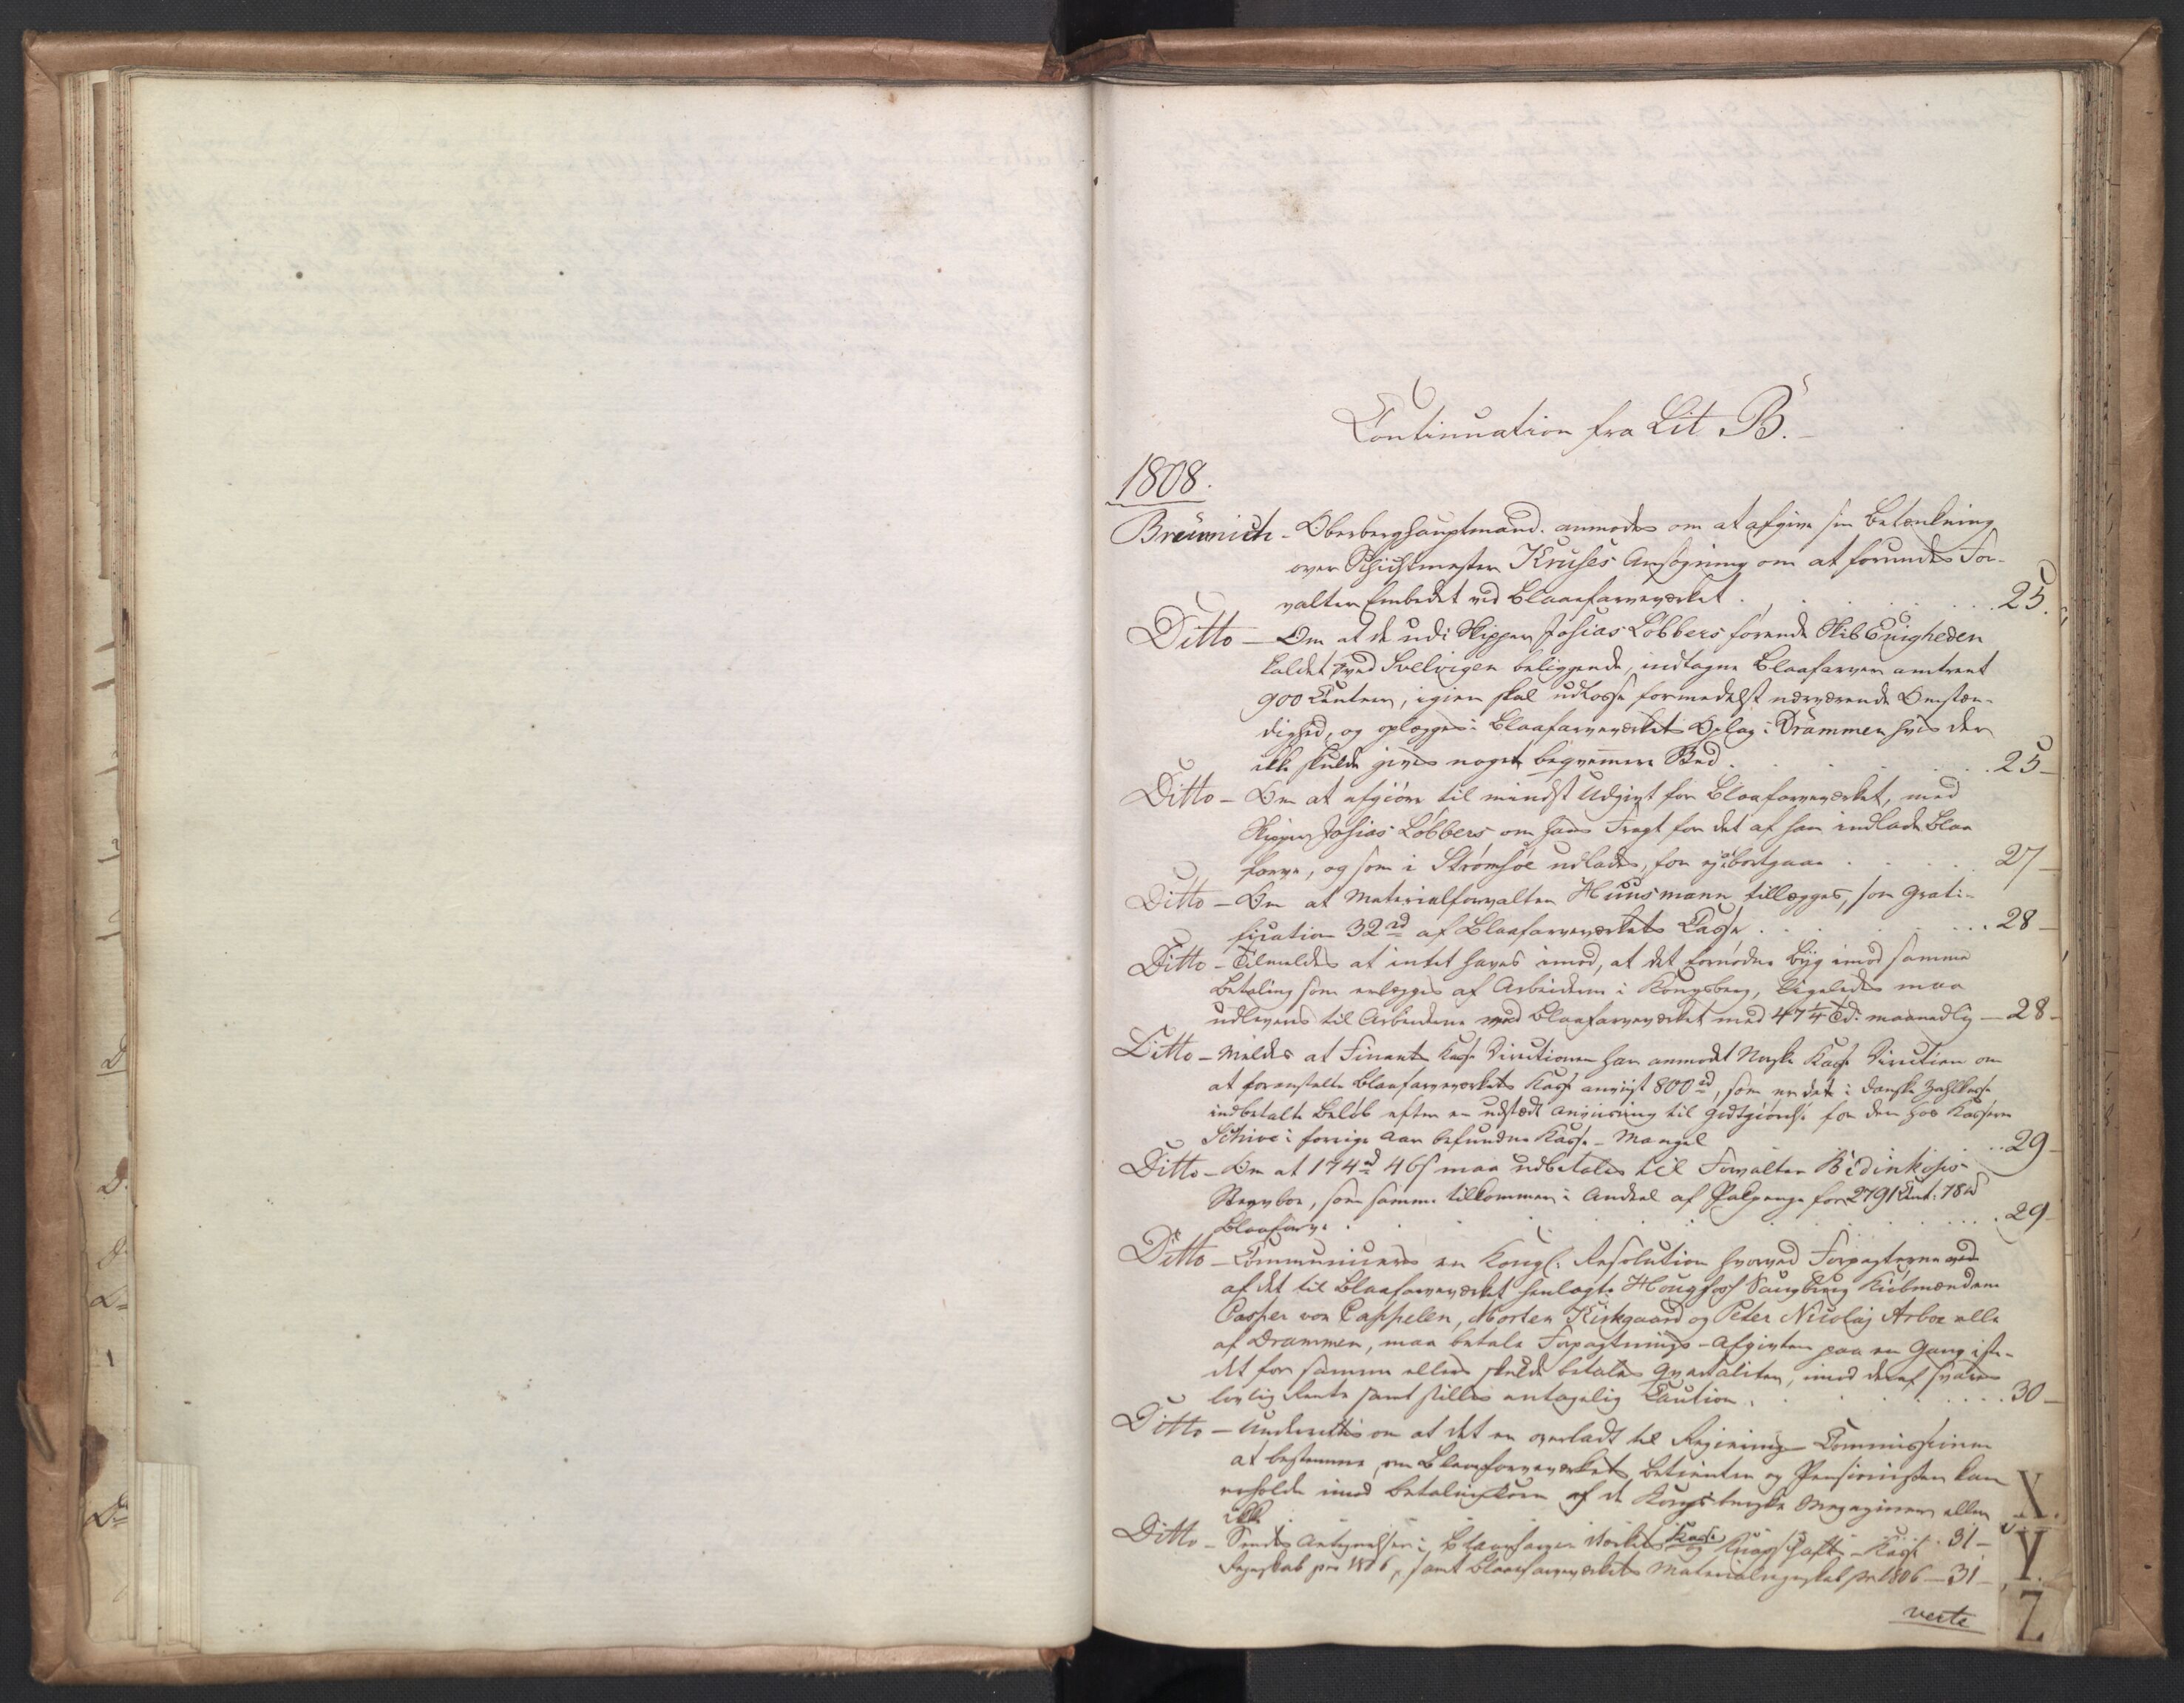 Continuation fra Lit B.
1808.
Brünnich - Oberberghauptmand. anmodes om at afgive sin Betænkning
over Schichtmester Kruses Ansøgning om at forundes For-
valter Embedet ved Blaafarveværket . . . 25.
Ditto - Om at de udi Skipper Josias Lobbers førende Skib Enigheden
kaldet, ved Svelvigen beliggende, indtagne Blaafarver omtrent
900 Centner, igien skal udlosse formedelst nærværende Omstæn-
dighed, og oplægges i Blaafarveværkets Oplag i Drammen hvis der
ikke skulde gives noget beqvemmere Sted . . . 25 -
Ditto - Om at afgiøre til mindst Udgivt for Blaafarveværket, med
Skipper Josias Lobbers om hans Fragt for det af ham indlade Blaa
farve, og som i Strømsøe udlades, for ej at bortgaae . . . 27 -
Ditto - Om at Materialforvalter Huusmann tillægges, som Grati-
fication 32 rd af Blaafarveværkets Casse . . . 28 -
Ditto - Tilmeldes at intet haves imod, at det fornødne Byg imod samme
Betaling som erlægges af Arbeiderne i Kongsberg, ligeledes maa
udleveres til Arbeiderne ved Blaafarveværket med 47 1/4 Td. maanedlig - 28 -
Ditto - Meldes at Finants Kasse Directionen har anmodet Norske Kasse Direction om
at foranstalte Blaafarveværkets Kasse anviist 800 rd, som er det i danske Zahlkasse
indbetalte Beløb efter en udstædt Anviisning til Godtgiørelse for den hos Kasserer
Schive i forrige Aar befundne Kasse-Mangel . . 29 -
Ditto - Om at 174 rd 46 s maa udbetales til Forvalter Bedinkosis
Stervboe, som samme tilkommer i Andeel af Pakpenge for 2791 Cent: 78 ℔
Blaafarve . . . 29 -
Ditto - Communiceres en Kongl: Resolution hvorved Forpagterne
af det til Blaafarveværket henlagte Hougfoss Saugbrug Kiøbmændene
Casper von Cappelen, Morten Kirkgaard og Peter Nicolaj Arboe alle
af Drammen, maa betale Forpagtnings-Afgivten paa en Gang iste-
det for samme ellers skulde betales Qvartaliter, imod deraf svares
lovlig Rente samt stilles antagelig Caution . . . 30 -
Ditto - Underrettes om at det er overladt til Regierings Commissionen
at bestemme, om Blaafarveværkets Betienter og Pensionister kan
erholde imod Betaling Korn af de Kongsbergske Magaziner eller
ikke . . . 31 -
Ditto - Sendes Antegnelser i Blaafarve Værkets Kasse og Knapschafts-Kasse
Regnskab pro 1806, samt Blaafarveværkets Materialregnskab pro 1806 - 31 -
verte
X.
Y.
Z